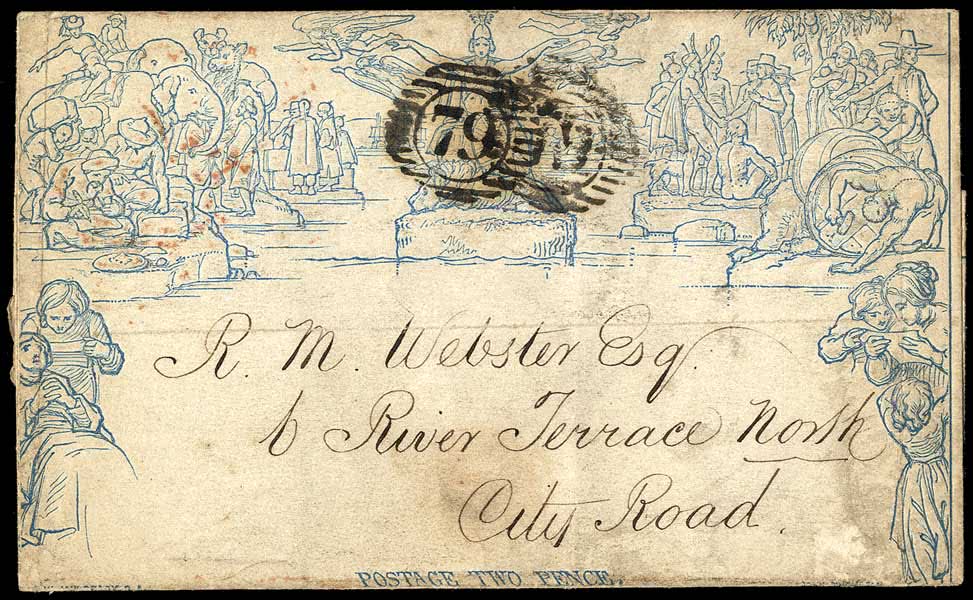 79
R. M. Webster Esq.
6 River Terrace North
City Road.
POSTAGE TWO PENCE.